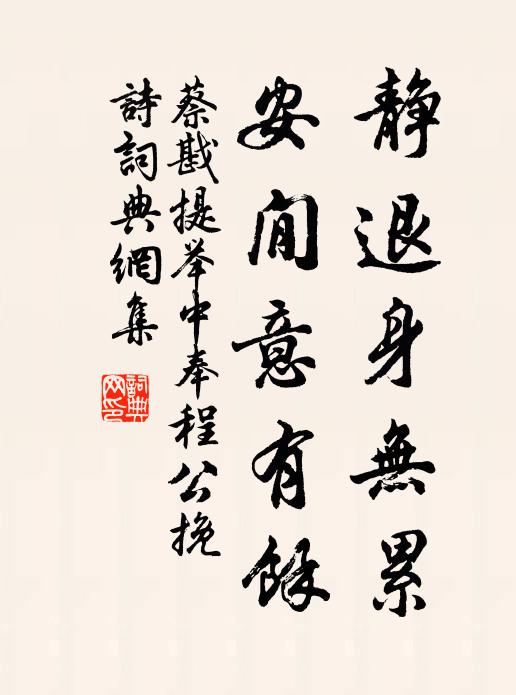 静退身無累
安閒意有餘
蔡戡提举中奉程公挽
詩詞典網集
詞典
网印